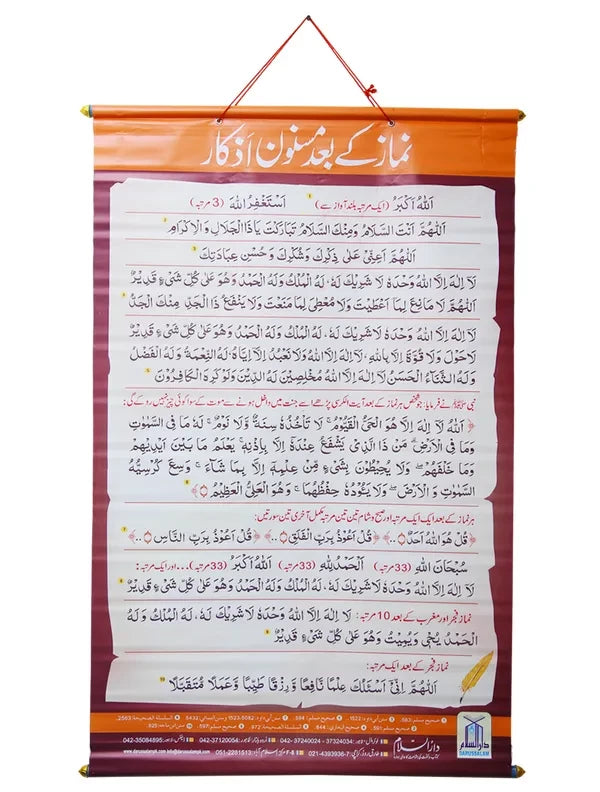 نماز کے بعد مسنون اَذکار
اَللهُ اَكْبَرُ (ایک مرتبہ بلند آواز سے) اَسْتَغْفِرُ اللهَ (3 مرتبہ)
اَللّٰهُمَّ اَنْتَ السَّلَامُ وَمِنْكَ السَّلَامُ تَبَارَكْتَ يَا ذَا الْجَلَالِ وَالْاِكْرَامِ
اَللّٰهُمَّ اَعِنِّيْ عَلٰى ذِكْرِكَ وَشُكْرِكَ وَحُسْنِ عِبَادَتِكَ
لَا اِلٰهَ اِلَّا اللهُ وَحْدَهٗ لَا شَرِيْكَ لَهٗ، لَهُ الْمُلْكُ وَلَهُ الْحَمْدُ وَهُوَ عَلٰى كُلِّ شَيْءٍ قَدِيْرٌ
اَللّٰهُمَّ لَا مَانِعَ لِمَا اَعْطَيْتَ وَلَا مُعْطِيَ لِمَا مَنَعْتَ وَلَا يَنْفَعُ ذَا الْجَدِّ مِنْكَ الْجَدُّ
لَا اِلٰهَ اِلَّا اللهُ وَحْدَهٗ لَا شَرِيْكَ لَهٗ، لَهُ الْمُلْكُ وَلَهُ الْحَمْدُ وَهُوَ عَلٰى كُلِّ شَيْءٍ قَدِيْرٌ
لَا حَوْلَ وَلَا قُوَّةَ اِلَّا بِاللهِ، لَا اِلٰهَ اِلَّا اللهُ وَلَا نَعْبُدُ اِلَّا اِيَّاهُ، لَهُ النِّعْمَةُ وَلَهُ الْفَضْلُ
وَلَهُ الثَّنَاءُ الْحَسَنُ لَا اِلٰهَ اِلَّا اللهُ مُخْلِصِيْنَ لَهُ الدِّيْنَ وَلَوْ كَرِهَ الْكَافِرُوْنَ
نبی ﷺ نے فرمایا: جو شخص ہر نماز کے بعد آیت الکرسی پڑھے اسے جنت میں داخل ہونے سے موت کے سوا کوئی چیز نہیں روکے گی:
﴿اَللهُ لَا اِلٰهَ اِلَّا هُوَ الْحَيُّ الْقَيُّوْمُ ۚ لَا تَاْخُذُهٗ سِنَةٌ وَّلَا نَوْمٌ ۚ لَهٗ مَا فِي السَّمٰوٰتِ
وَمَا فِي الْاَرْضِ ۗ مَنْ ذَا الَّذِيْ يَشْفَعُ عِنْدَهٗ اِلَّا بِاِذْنِهٖ ۚ يَعْلَمُ مَا بَيْنَ اَيْدِيْهِمْ
وَمَا خَلْفَهُمْ ۚ وَلَا يُحِيْطُوْنَ بِشَيْءٍ مِّنْ عِلْمِهٖ اِلَّا بِمَا شَاءَ ۚ وَسِعَ كُرْسِيُّهُ
السَّمٰوٰتِ وَالْاَرْضَ ۚ وَلَا يَـُٔوْدُهٗ حِفْظُهُمَا ۚ وَهُوَ الْعَلِيُّ الْعَظِيْمُ﴾
ہر نماز کے بعد ایک ایک مرتبہ اور صبح و شام تین تین مرتبہ مکمل آخری تین سورتیں:
﴿قُلْ هُوَ اللهُ اَحَدٌ﴾.. ﴿قُلْ اَعُوْذُ بِرَبِّ الْفَلَقِ﴾.. ﴿قُلْ اَعُوْذُ بِرَبِّ النَّاسِ﴾..
سُبْحَانَ اللهِ (33 مرتبہ) اَلْحَمْدُ لِلّٰهِ (33 مرتبہ) اَللهُ اَكْبَرُ (33 مرتبہ)... اور ایک مرتبہ:
لَا اِلٰهَ اِلَّا اللهُ وَحْدَهٗ لَا شَرِيْكَ لَهٗ، لَهُ الْمُلْكُ وَلَهُ الْحَمْدُ وَهُوَ عَلٰى كُلِّ شَيْءٍ قَدِيْرٌ
نماز فجر اور مغرب کے بعد 10 مرتبہ: لَا اِلٰهَ اِلَّا اللهُ وَحْدَهٗ لَا شَرِيْكَ لَهٗ، لَهُ الْمُلْكُ وَلَهُ
الْحَمْدُ يُحْيِيْ وَيُمِيْتُ وَهُوَ عَلٰى كُلِّ شَيْءٍ قَدِيْرٌ
نماز فجر کے بعد ایک مرتبہ:
اَللّٰهُمَّ اِنِّيْ اَسْئَلُكَ عِلْمًا نَافِعًا وَّرِزْقًا طَيِّبًا وَّعَمَلًا مُّتَقَبَّلًا
دارالسلام
DARUSSALAM
042-37324034 ، 042-37240024
042-37120054
042-35084895
021-4393936-7
051-2281513
info@darussalampk.com
www.darussalampk.com